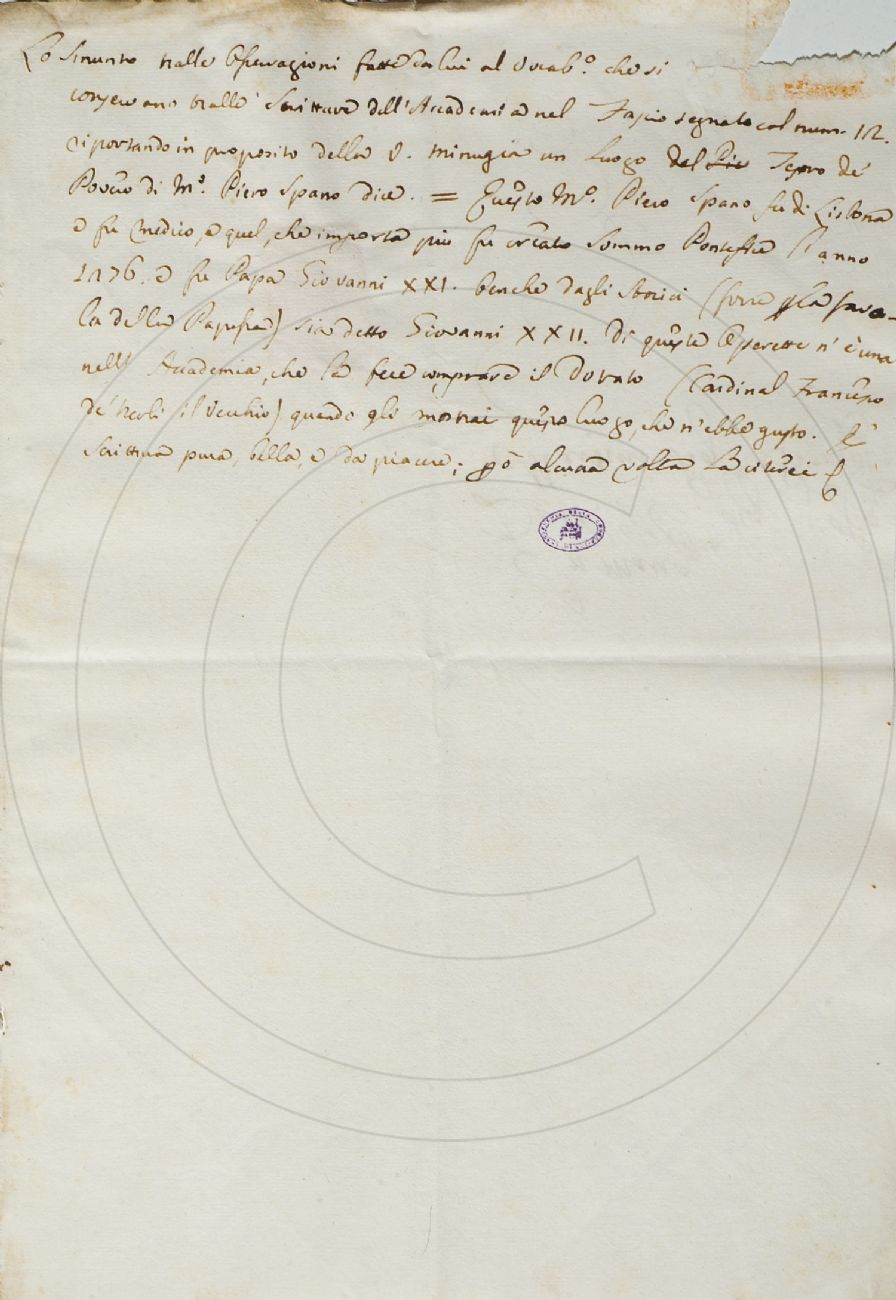 Lo Smunto nalle Osservazioni fatte da lui al Vocab.º che si
conservano tralle Scritture dell'Accademia nel Fascio segnato col num. 12.
riportando in proposito della V. Minugia un luogo del Tesoro de'
Poveri di M.º Piero Spano dice. = Questo M.º Piero Spano fu di Lisbona
e fu Medico, e quel, che importa più fu creato Sommo Pontefice l'anno
1276. e fu Papa Giovanni XXI. benche dagli storici (forse p la favo-
la della Papessa) sia detto Giovanni XXII. Di queste Operette n'è una
nell' Accademia, che la fece comprare il (Cardinal Francesco
de' Nerli il Vecchio) quando gli mostrai questo luogo, che n'ebbe gusto. È
Scrittura pura, bella, e da piacere; però alcuna volta la citerei